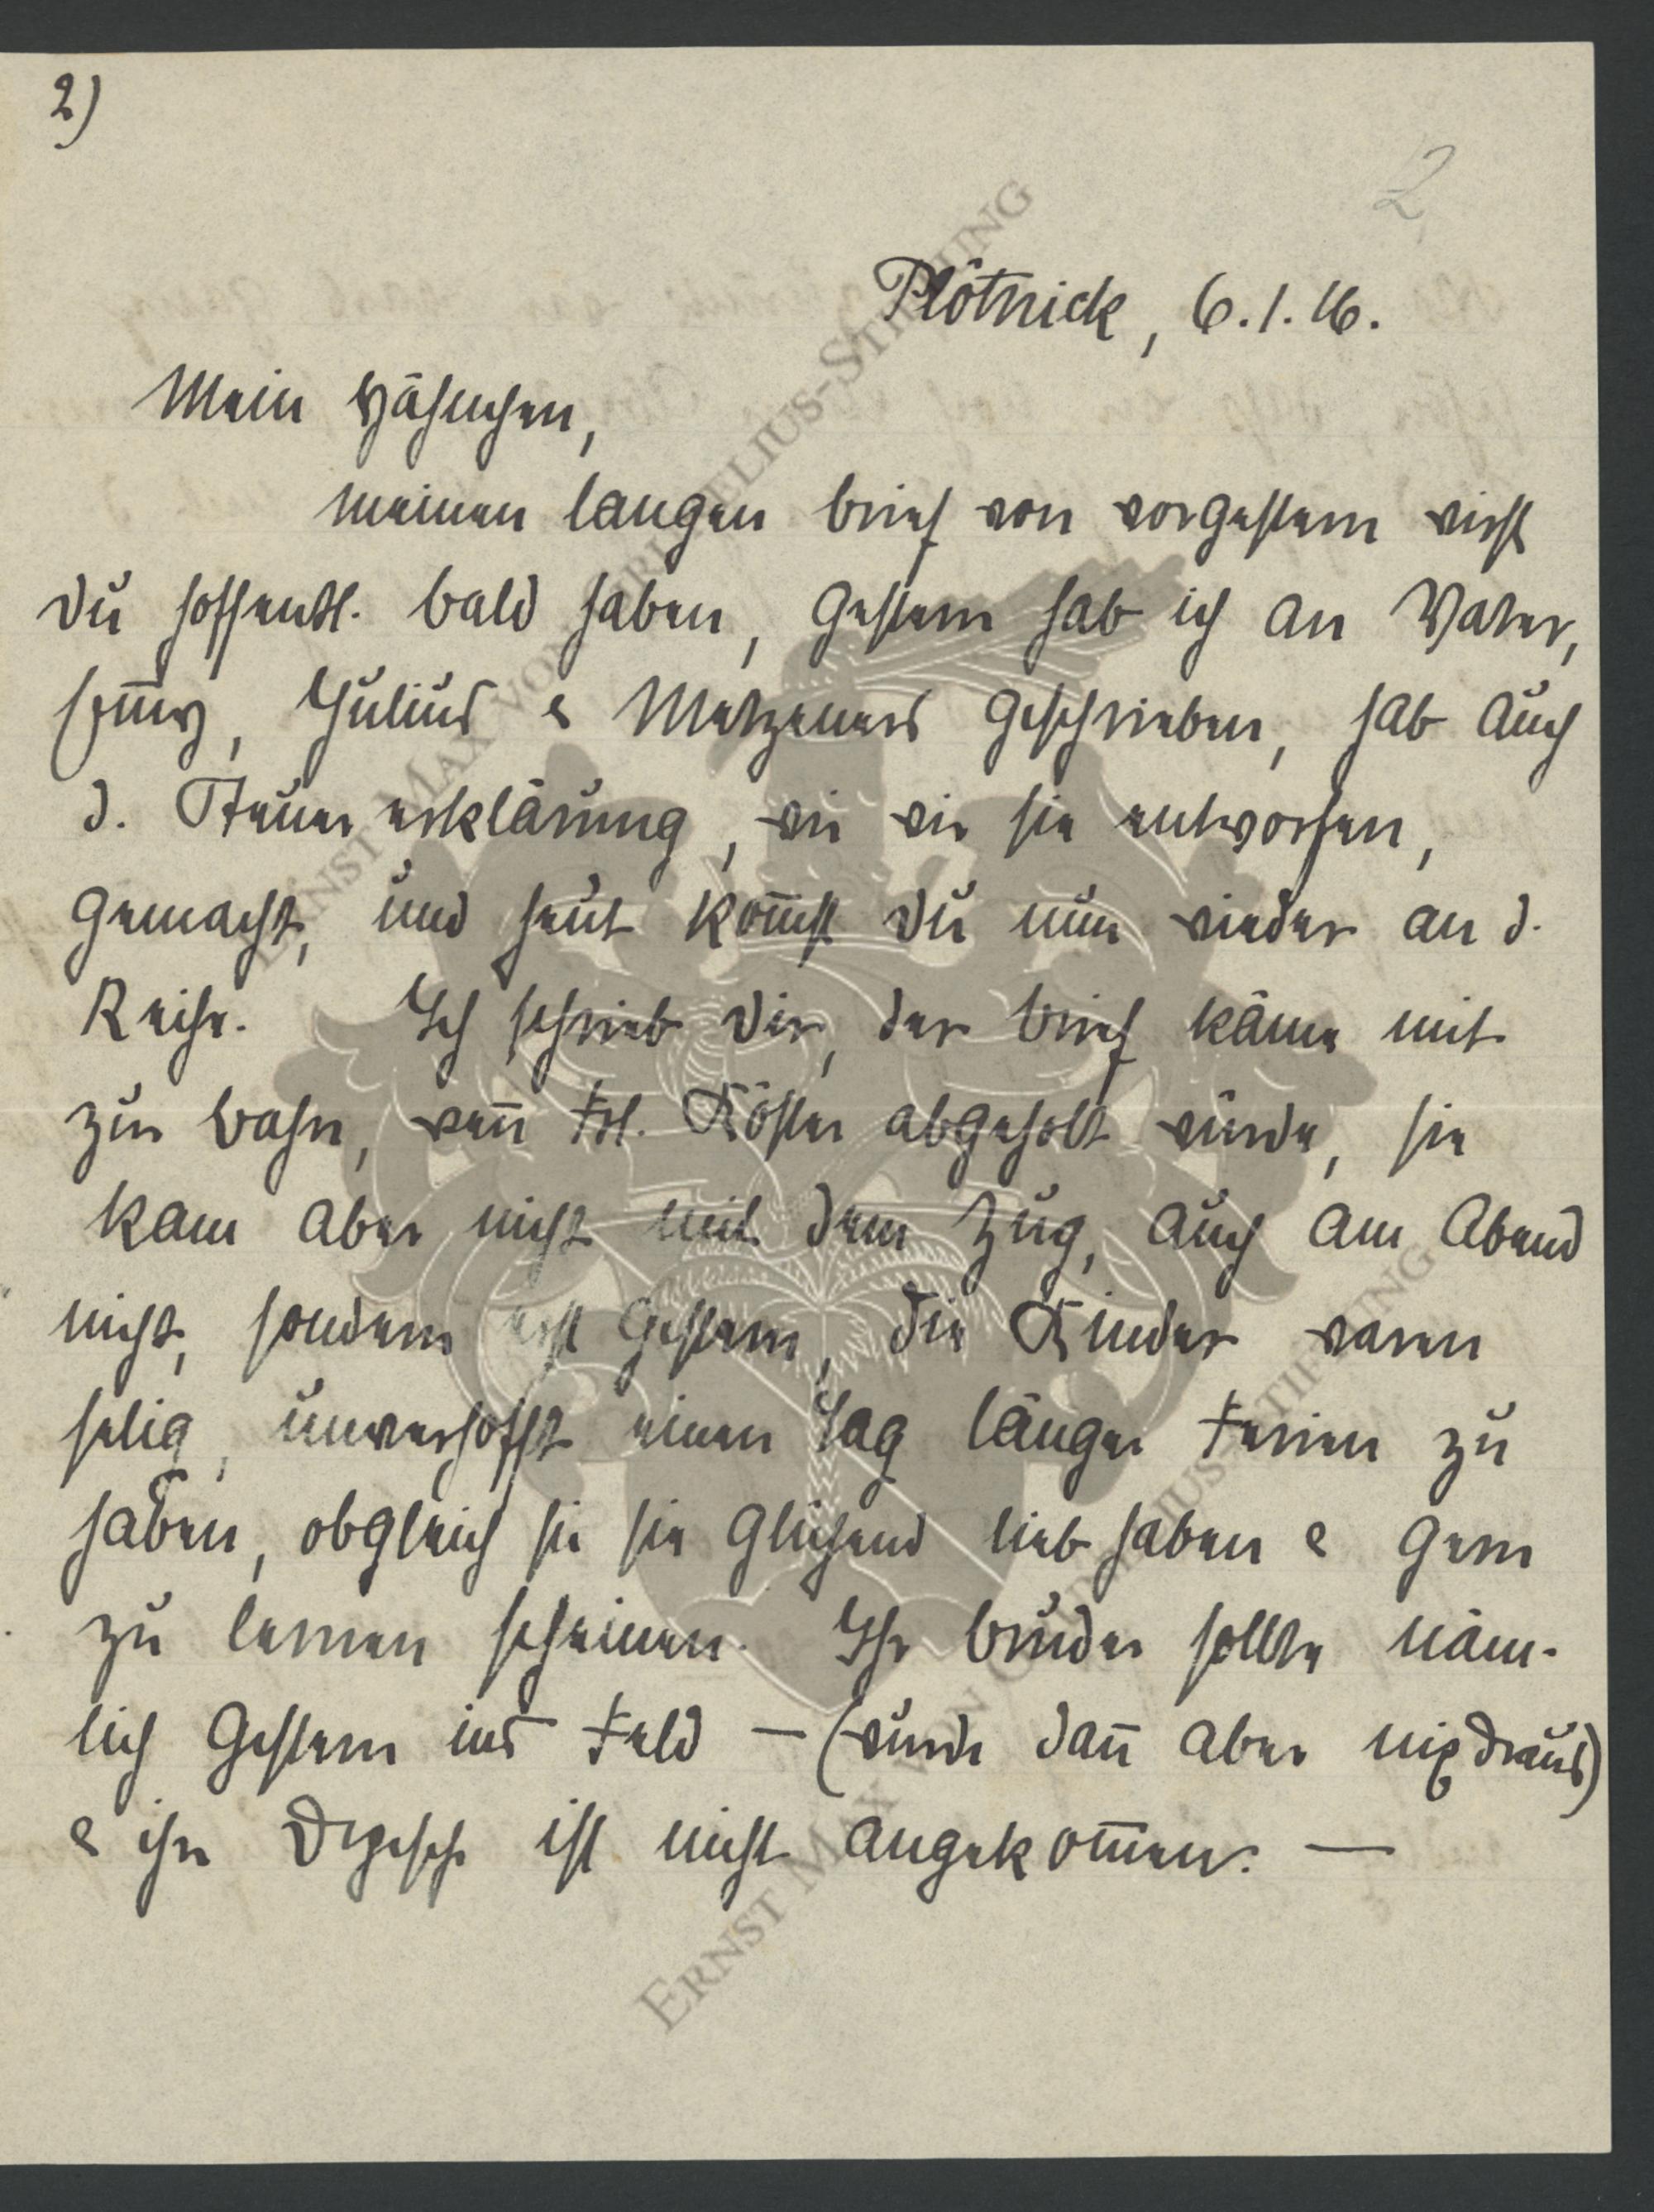 2)
2
Plötnick, 6.1.16.
Mein Hähnchen,
meinen langen Brief von vorgestern wirst
Du hoffentl. bald haben, gestern hab ich an Vater,
Julius & Metzeners geschrieben, hab auch
d. Steuererklärung, wie wir sie entworfen,
gemacht, und heut kom̅st Du nun wieder an d.
Reihe. Ich schrieb Dir, der Brief käme mit
zur Bahn, wen̅ Frl. Köster abgeholt würde, sie
kam aber nicht mit dem Zug, auch am Abend
nicht, sondern erst gestern, die Kinder waren
selig, unverhofft einen Tag länger Ferien zu
haben, obgleich sie sie glühend lieb haben & gern
zu lernen scheinen. Ihr Bruder sollte näm-
lich gestern ins Feld — (wurde dan̅ aber nix draus)
& ihre Depesche ist nicht angekom̅en. —
ERNST MAX VON GRUNELIUS-STIFTUNG
ERNST MAX VON GRUNELIUS-STIFTUNG